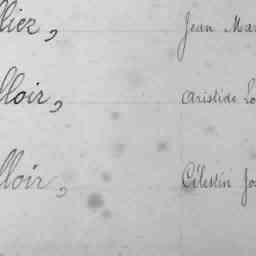 lliez, Jean Mar
lloir, Aristide Lo
lloir, Célestin Jos